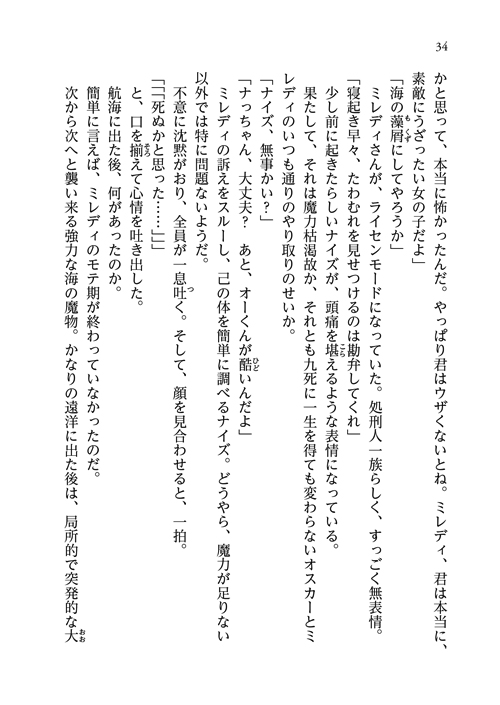 34
かと思って、本当に怖かったんだ。やっぱり君はウザくないとね。ミレディ、君は本当に、
素敵にうざったい女の子だよ」
「海の藻屑にしてやろうか」
ミレディさんが、ライセンモードになっていた。処刑人一族らしく、すっごく無表情。
「寝起き早々、たわむれを見せつけるのは勘弁してくれ」
少し前に起きたらしいナイズが、頭痛を堪えるような表情になっている。
果たして、それは魔力枯渇故か、それとも九死に一生を得ても変わらないオスカーとミ
レディのいつも通りのやり取りのせいか。
「ナイズ、無事かい？」
「ナっちゃん、大丈夫？　あと、オーくんが酷いんだよ」
ミレディの訴えをスルーし、己の体を簡単に調べるナイズ。どうやら、魔力が足りない
以外では特に問題ないようだ。
不意に沈黙がおり、全員が一息吐く。そして、顔を見合わせると、一拍。
「「「死ぬかと思った……」」」
と、口を揃えて心情を吐き出した。
航海に出た後、何があったのか。
簡単に言えば、ミレディのモテ期が終わっていなかったのだ。
次から次へと襲い来る強力な海の魔物。かなりの遠洋に出た後は、局所的で突発的な大